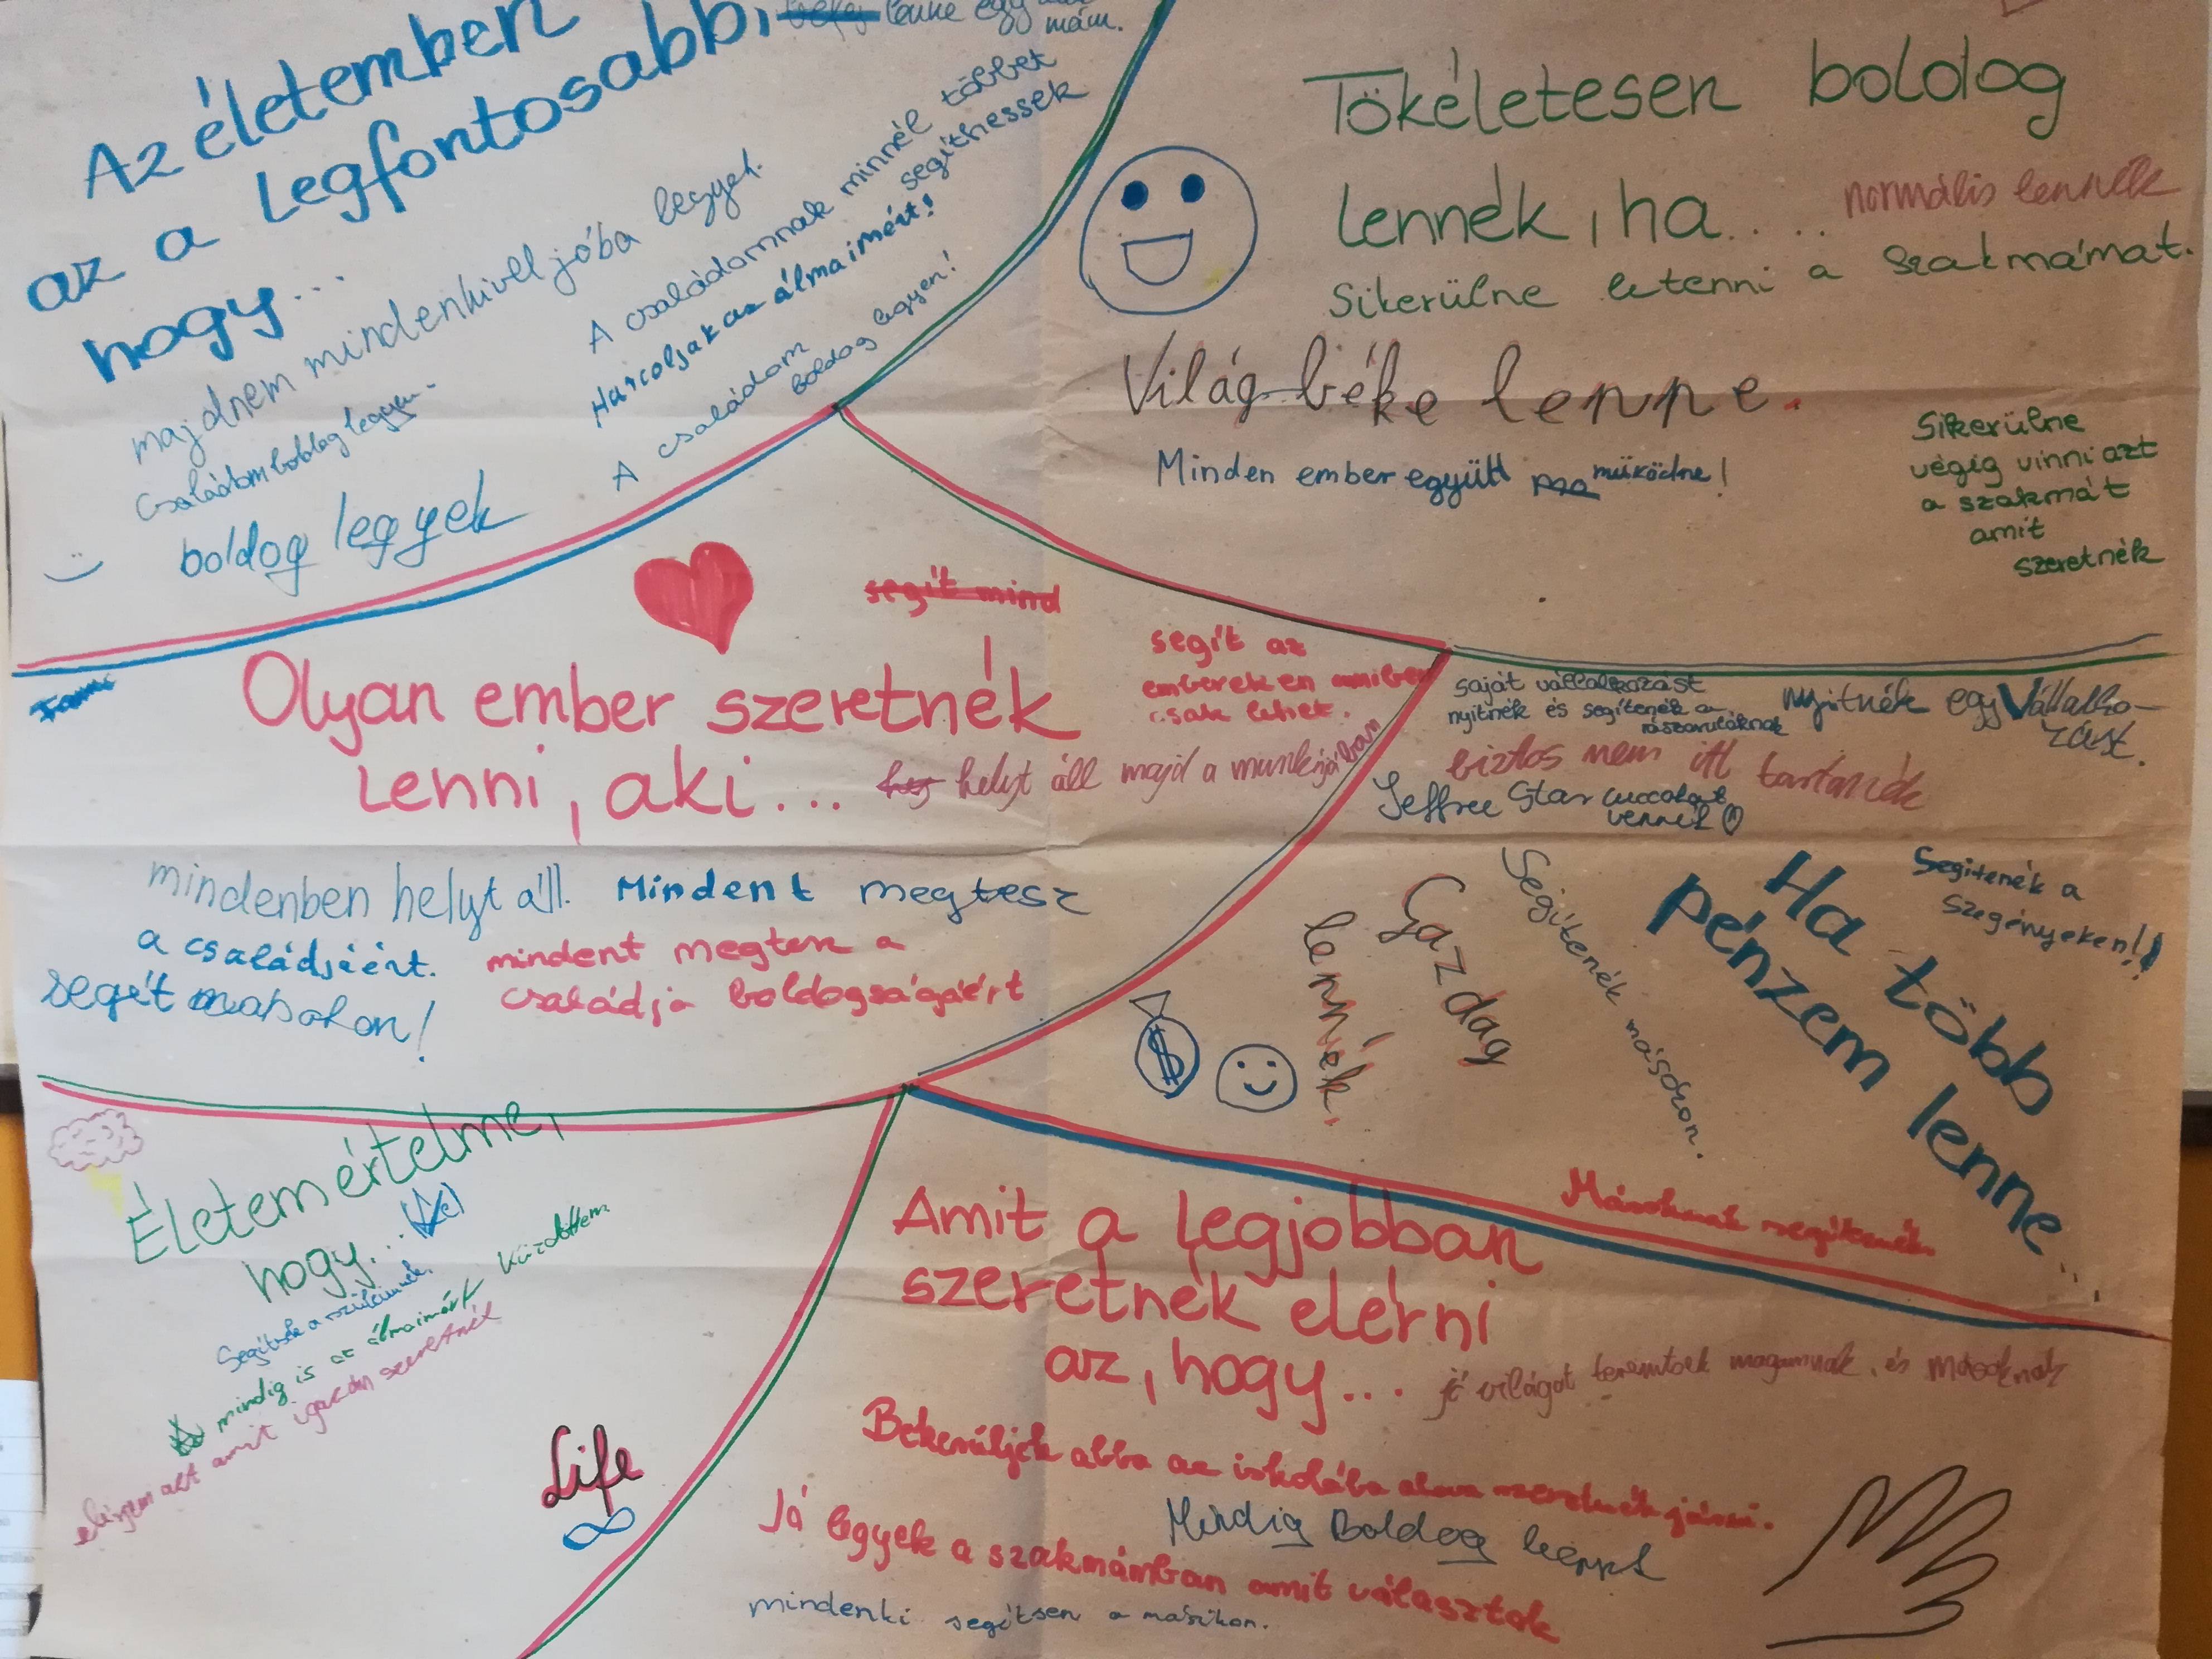 Az életemben
az a legfontosabb,
hogy...
lenne egy
mám.
majdnem mindenkivel jóba legyek.
Családom boldog legyen.
boldog legyek
A családomnak minnél többet
segíthessek
Harcoljak az álmaimért!
A családom
boldog legyen!
Tökéletesen boldog
lennék, ha.... normális lennék
Sikerülne letenni a szakmámat.
Világ béke lenne.
Minden ember együtt működne!
Sikerülne
végig vinni azt
a szakmát
amit
szeretnék
segít mind
Olyan ember szeretnék
lenni, aki...
segít az
embereken amiben
csak lehet.
helyt áll majd a munkájában
mindenben helyt áll. Mindent megtesz
a családjáért.
mindent megtesz a
családja boldogságáért
segít másokon!
saját vállalkozást
nyitnék és segítenék a
rászorulóknak
nyitnék egy Vállalko-
zást.
biztos nem itt tartanék
Jeffree Star cuccokat
vennék
Segítenék a
szegényeken!!
Ha több
pénzem lenne...
Segítenék másokon.
Gazdag
lennék.
$
Másoknak segítenék.
Életem értelme,
hogy...
Segítsek a szüleimnek.
mindig is az álmaimért küzdöttem
elérjem azt amit igazán szeretnék
Life
Amit a legjobban
szeretnék elérni
az, hogy... jó világot teremtsek magamnak, és másoknak
Bekerüljek abba az iskolába ahova szeretnék járni.
Mindig Boldog
Jó legyek a szakmámban amit választok
mindenki segítsen a másikon.